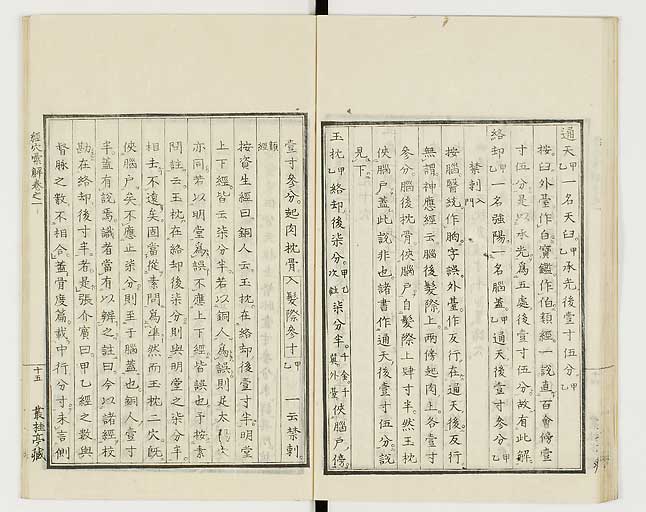 通天甲乙一名天臼乙甲承光後壹寸伍分甲
按臼外臺作白寶鑑作伯類經一説直百會傍壹
寸伍分是以承光爲五處後壹寸伍分故有此解
絡却甲乙一名強陽一名腦蓋甲通天後壹寸參分甲乙
禁刺入門
按腦醫統作胸字誤外臺作反行在通天後反行
無謂神應經云腦後髮際上兩傍起肉上各壹寸
參分腦後枕骨俠腦戸自髮際上肆寸半然玉枕
俠腦戸蓋此説非也諸書作通天後壹寸伍分説
見下
玉枕甲乙絡却後柒分甲乙次註柒分半千金千翼外臺俠腦戸傍
壹寸參分起肉枕骨入髮際參寸甲乙一云禁刺
類經
按資生經曰銅人云玉枕在絡却後壹寸半明堂
上下經皆云柒分半若以銅人爲誤則足太陽穴
亦同若以明堂爲誤不應上下經皆誤也于按素
問註云玉枕在絡却後柒分則與明堂之柒分半
相去不遠矣固當從素問爲準然而玉枕二穴既
俠腦戸矣不應止柒分則至于腦蓋也銅人壹寸
半蓋有説焉識者當有以辨之註曰今以諸經校
勘在絡却後寸半者是張介賓曰甲乙經之數與
督脉之數不相合蓋骨度篇載中行分寸未言側
經穴彙解卷之一
十五
叢桂亭藏